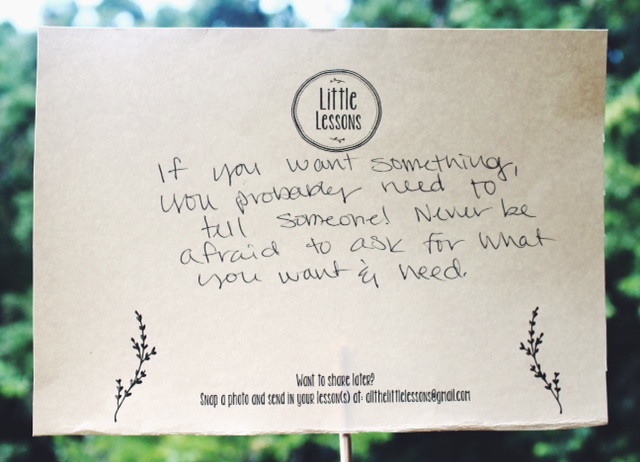 Little
Lessons
If you want something,
you probabley need to
tell someone! Never be
afraid to ask for what
you want & need.
Want to share later?
Snap a photo and send in your lesson(s) at: allthelittlelessons@gmail.com